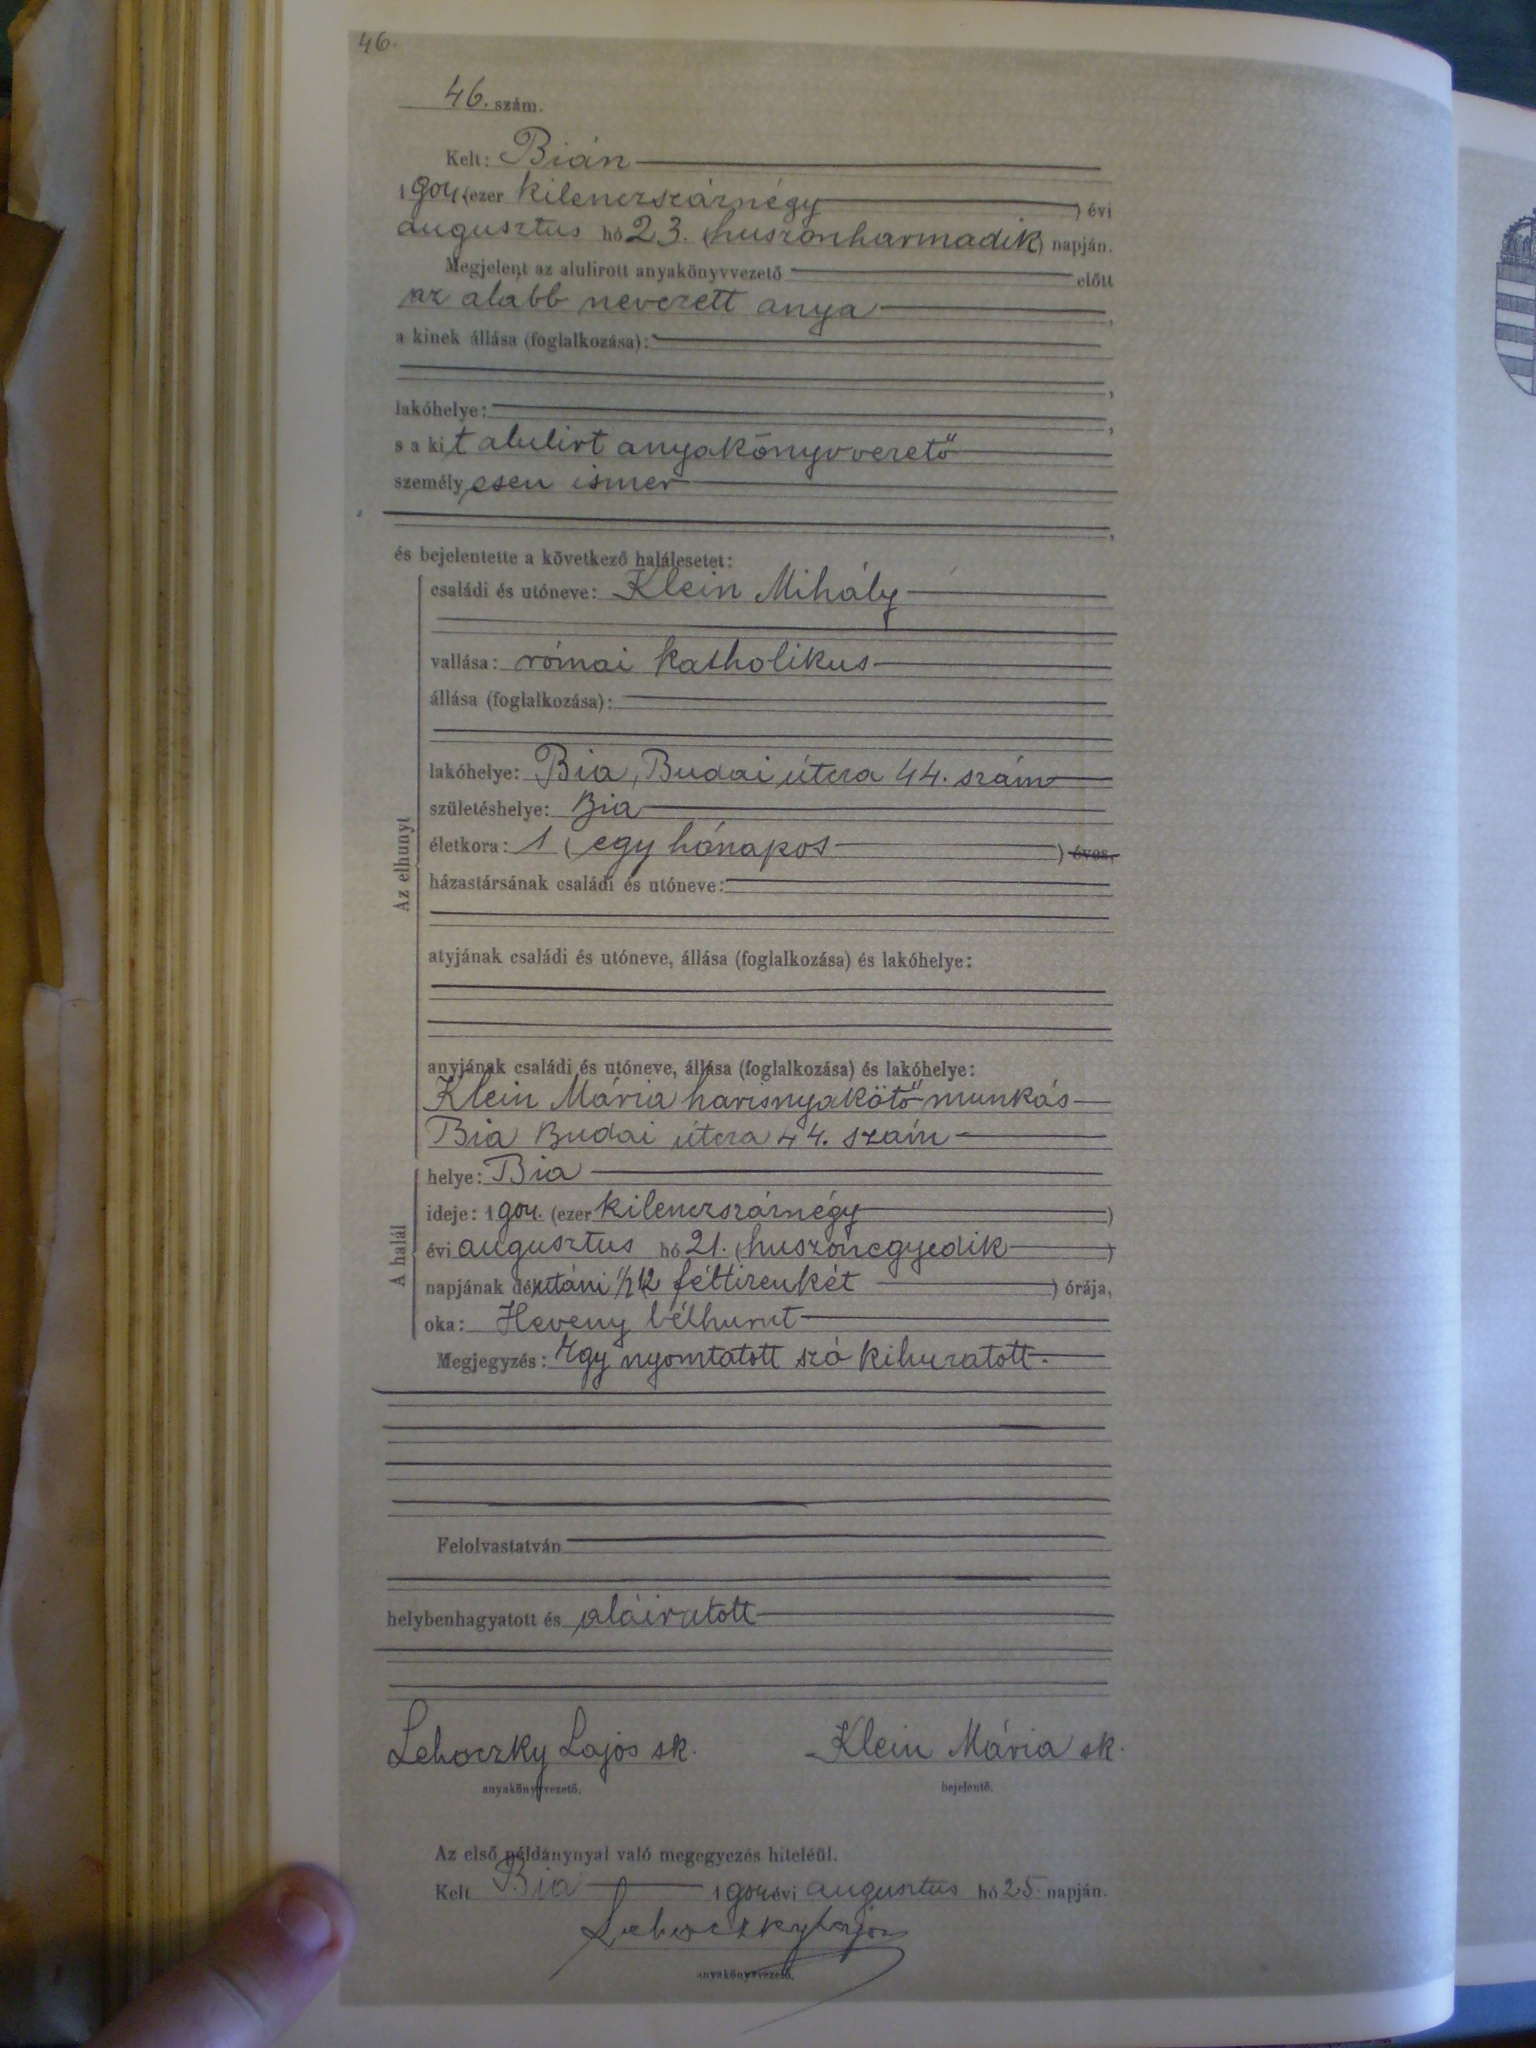 46.
46. szám.
Kelt: Bián
1904 (ezer kilenczszáznégy) évi
augusztus hó 23. (huszonharmadik) napján.
Megjelent az alulirott anyakönyvvezető előtt
az alább nevezett anya,
a kinek állása (foglalkozása):
,
lakóhelye: ,
s a kit alulirt anyakönyvvezető
személyesen ismer
,
és bejelentette a következő halálesetet:
Az elhunyt
családi és utóneve: Klein Mihály
vallása: római katholikus
állása (foglalkozása):
lakóhelye: Bia, Budai útcza 44. szám
születéshelye: Bia
életkora: 1 (egy hónapos) éves.
házastársának családi és utóneve:
atyjának családi és utóneve, állása (foglalkozása) és lakóhelye:
anyjának családi és utóneve, állása (foglalkozása) és lakóhelye:
Klein Mária harisnyakötő munkás
Bia Budai útcza 44. szám
A halál
helye: Bia
ideje: 1904. (ezer kilenczszáznégy)
évi augusztus hó 21. (huszonegyedik)
napjának délutáni ½12 féltizenkét) órája,
oka: Heveny bélhurut
Megjegyzés: Egy nyomtatott szó kihuzatott.
Felolvastatván
helybenhagyatott és aláiratott
Lehoczky Lajos sk. Klein Mária sk.
anyakönyvvezető. bejelentő.
Az első példánynyal való megegyezés hiteléül.
Kelt Bia 1904 évi augusztus hó 25. napján.
Lehoczky Lajos
anyakönyvvezető.